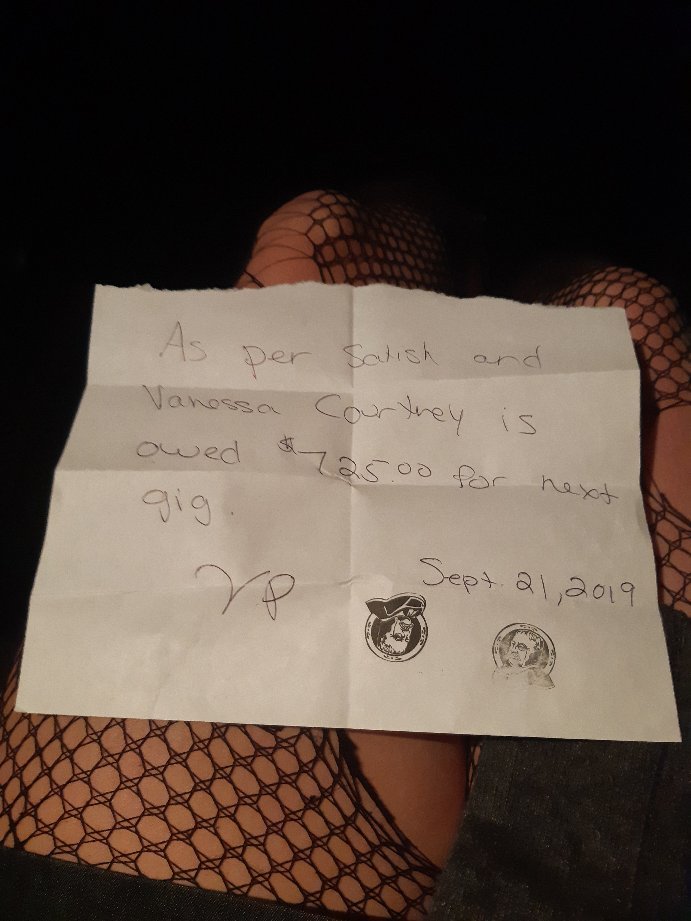 As per Satish and
Vanessa Courtney is
owed $725.00 for next
gig.
VP
Sept. 21, 2019